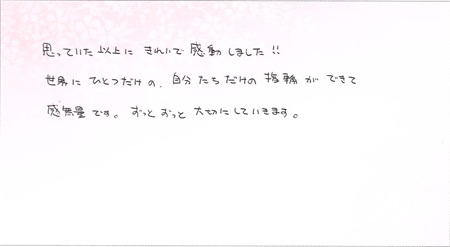 思っていた以上に きれいで 感動しました!!
世界に ひとつだけの、自分たちだけの 指輪が できて
感無量です。ずっと ずっと 大切にしていきます。